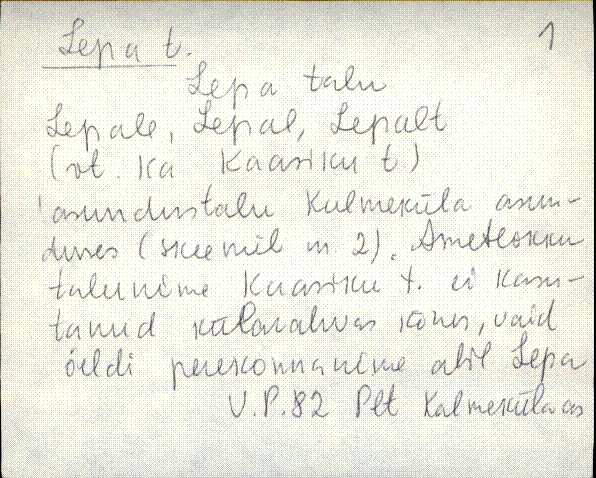 Lepa t. 1
Lepa talu
Lepale, Lepal, Lepalt
(vt. ka Kaasiku t)
'asundustalu Kulmeküla asun-
duses (skeemil nr 2). Ametlikku
talunime Kaasiku t. ei kasu-
tanud külarahvas kõnes, vaid
öeldi perekonnanime abil Lepa
V.P.82 Plt Kalmeküla as